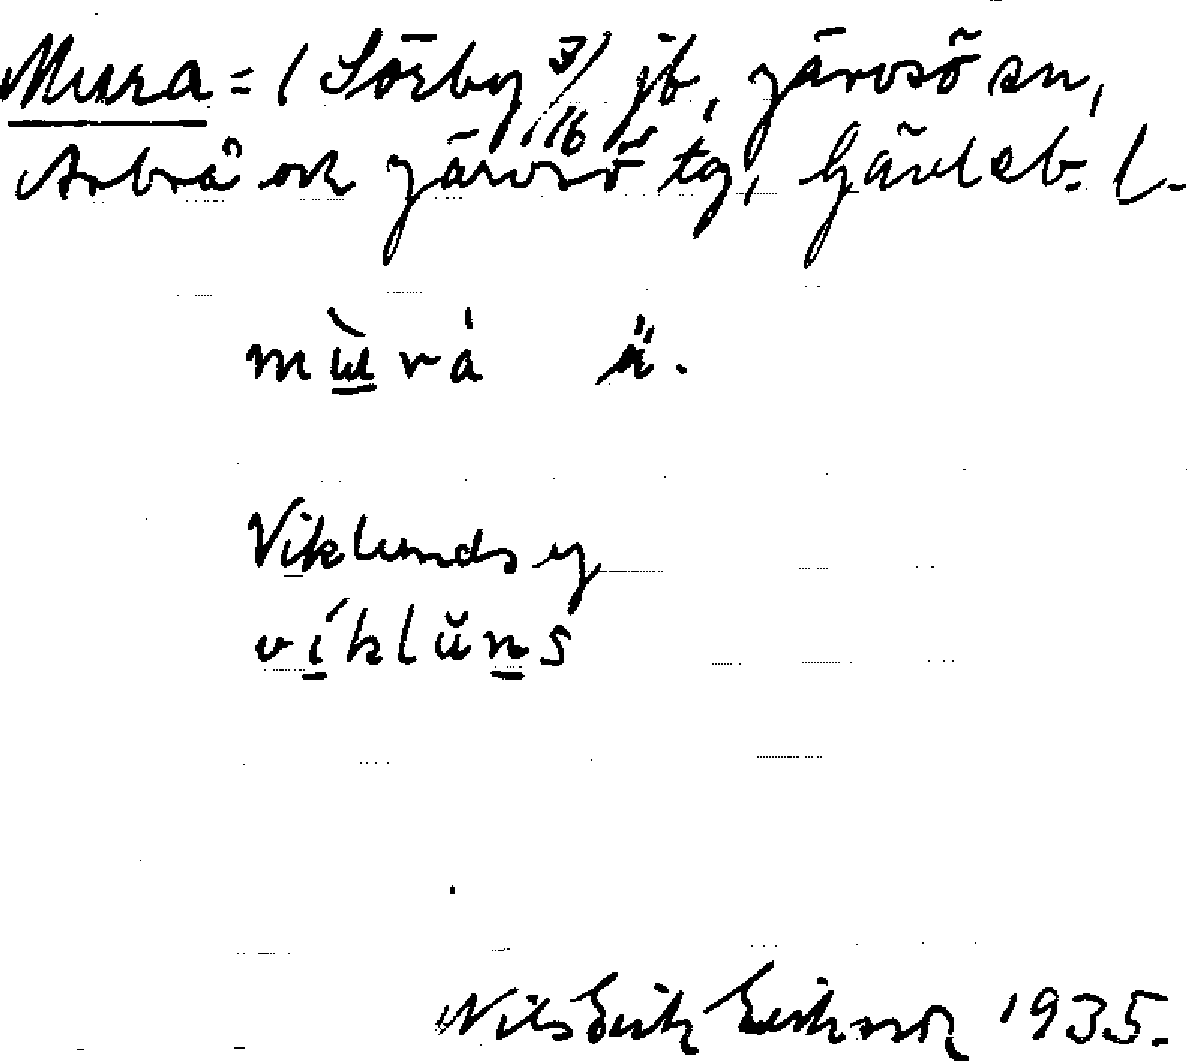 Mura = (Sörby 3/16) jb, Järvsö sn,
Arbrå och Järvsö tg, Gävleb. l.
mù̲rȧ ä.
Viklunds y
ví̲klŭn̲s
Nils Erik Eriksson 1935.